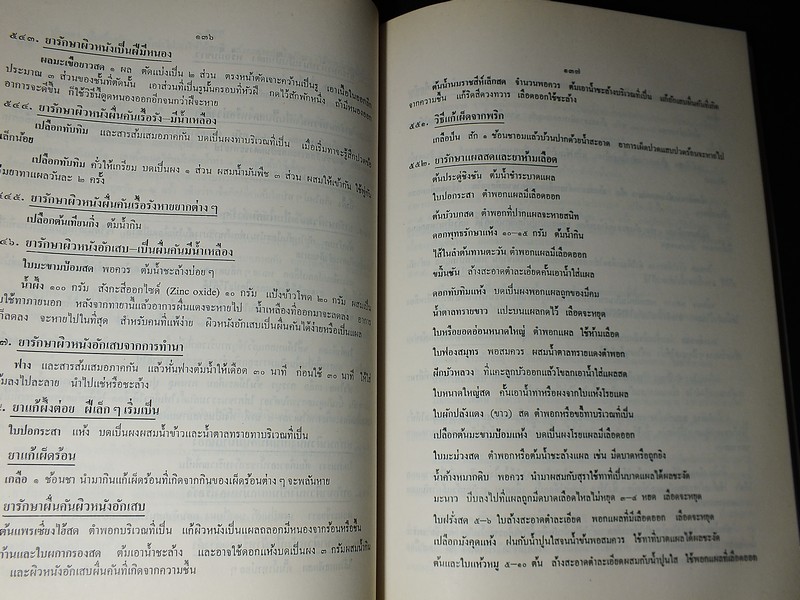 ๑๓๖
๕๔๓. ยารักษาผิวหนังเป็นฝีมีหนอง
ผลมะเขือยาวสด ๑ ผล ตัดแบ่งเป็น ๒ ส่วน ตรงหน้าตัดเจาะคว้านเป็นรู เอาเนื้อในออก
ประมาณ ๓ ส่วนของชั้นที่ตัดนั้น เอาส่วนที่เป็นรูนั้นครอบที่หัวฝี กดไว้สักพักหนึ่ง ถ้ามีหนองออก
อาการจะดีขึ้น ก็ใช้วิธีนี้ดูดหนองออกอีกจนกว่าฝีจะหาย
๕๔๔. ยารักษาผิวหนังผื่นคันเรื้อรัง–มีน้ำเหลือง
เปลือกทับทิม และสารส้มเสมอภาคกัน บดเป็นผงทาบริเวณที่เป็น เมื่อเริ่มทาจะรู้สึกปวด
เล็กน้อย
เปลือกทับทิม คั่วให้เกรียม บดเป็นผง ๑ ส่วน ผสมน้ำมันพืช ๓ ส่วน ผสมให้เข้ากัน ใช้
มียาทาแผลวันละ ๒ ครั้ง
๔๕. ยารักษาผิวหนังผื่นคันเรื้อรังหายยากต่าง ๆ
เปลือกต้นเทียนกิ่ง ต้มน้ำกิน
๔๖. ยารักษาผิวหนังอักเสบ–เป็นผื่นคันมีน้ำเหลือง
ใบมะขามป้อมสด พอควร ต้มน้ำชะล้างบ่อย ๆ
น้ำผึ้ง ๑๐๐ กรัม สังกะสีออกไซด์ (Zinc oxide) ๑๐ กรัม แป้งข้าวโพด ๒๐ กรัม ผสมเป็น
ใช้ทาภายนอก หลังจากทายานี้แล้วอาการผื่นแดงจะหายไป น้ำเหลืองที่ออกมาจะลดลง อาการ
ก็ลดลง จะหายไปในที่สุด สำหรับคนที่แพ้ง่าย ผิวหนังอักเสบเป็นผื่นคันได้ง่ายหรือเป็นแผล
๗. ยารักษาผิวหนังอักเสบจากการทำนา
ฟาง และสารส้มเสมอภาคกัน แล้วหั่นฟางต้มน้ำให้เดือด ๓๐ นาที ก่อนใช้ ๓๐ นาที ให้ใส่
ลงไปละลาย นำไปแช่หรือชะล้าง
ยาแก้ผึ้งต่อย ฝีเล็ก ๆ เริ่มเป็น
ใบปอกระสา แห้ง บดเป็นผงผสมน้ำข้าวและน้ำตาลทรายทาบริเวณที่เป็น
ยาแก้เผ็ดร้อน
เกลือ ๑ ช้อนชา นำมากินแก้เผ็ดร้อนที่เกิดจากกินของเผ็ดร้อนต่าง ๆ จะพลันหาย
ยารักษาผื่นคันผิวหนังอักเสบ
ต้นแพรเซี่ยงไฮ้สด ตำพอกบริเวณที่เป็น แก้ผิวหนังเป็นแผลถลอกมีหนองจากร้อนหรือชื้น
ก้านและใบผกากรองสด ต้มเอาน้ำชะล้าง และอาจใช้ดอกแห้งบดเป็นผง ๓ กรัมผสมน้ำกิน
และผิวหนังอักเสบผื่นคันที่เกิดจากความชื้น
๑๓๗
ต้นน้ำนมราชสีห์เล็กสด จำนวนพอควร ต้มเอาน้ำชะล้างบริเวณที่เป็น แก้ผิวหนังอักเสบผื่นคันที่เกิด
จากความชื้น แก้ริดสีดวงทวาร เลือดออกใช้ชะล้าง
๕๕๑. วิธีแก้เผ็ดจากพริก
เกลือป่น สัก ๑ ช้อนชาอมแล้วบ้วนปากด้วยน้ำสะอาด อาการเผ็ดปวดแสบปวดร้อนจะหายไป
๕๕๒. ยารักษาแผลสดและยาห้ามเลือด
ต้นประดู่ชิงชัน ต้มน้ำชำระบาดแผล
ใบปอกระสา ตำพอกแผลมีเลือดออก
ต้นบัวบกสด ตำพอกที่ปากแผลจะหายสนิท
ดอกพุทธรักษาแห้ง ๑๐–๑๕ กรัม ต้มน้ำกิน
ไส้ในลำต้นทานตะวัน ตำพอกแผลมีเลือดออก
ขมิ้นชัน ล้างสะอาดตำละเอียดคั้นเอาน้ำใส่แผล
ดอกทับทิมแห้ง บดเป็นผงพอกแผลถูกของมีคม
น้ำตาลทรายขาว แปะบนแผลกดไว้ เลือดจะหยุด
ใบหรือยอดอ่อนหนาดใหญ่ ตำพอกแผล ใช้ห้ามเลือด
ใบฟองสมุทร พอสมควร ผสมน้ำตาลทรายแดงตำพอก
ฝักบัวหลวง ที่แกะลูกบัวออกแล้วโขลกเอาน้ำใส่แผลสด
ใบหนาดใหญ่สด คั้นเอาน้ำทาหรือผงจากใบแห้งโรยแผล
ใบผักปลังแดง (ขาว) สด ตำพอกหรือขยี้ทาบริเวณที่เป็น
เปลือกต้นมะขามป้อมแห้ง บดเป็นผงโรยแผลมีเลือดออก
ใบมะม่วงสด ตำพอกหรือต้มน้ำชะล้างแผล เช่น มีดบาดหรือถูกยิง
น้ำค้างหมากดิบ พอควร นำมาผสมกับสุราใช้ทาที่เป็นบาดแผลได้ผลชะงัด
มะนาว บีบลงไปที่แผลถูกมีดบาดเลือดไหลไม่หยุด ๓–๔ หยด เลือดจะหยุด
ใบฝรั่งสด ๕–๖ ใบล้างสะอาดตำละเอียด พอกแผลที่มีเลือดออก เลือดจะหยุด
เปลือกมังคุดแห้ง ฝนกับน้ำปูนใสจนน้ำข้นพอสมควร ใช้ทาที่บาดแผลได้ผลชะงัด
ต้นและใบแห้วหมู ๕–๑๐ ต้น ล้างสะอาดตำละเอียดผสมกับน้ำปูนใส ใช้พอกแผลที่เลือดออก